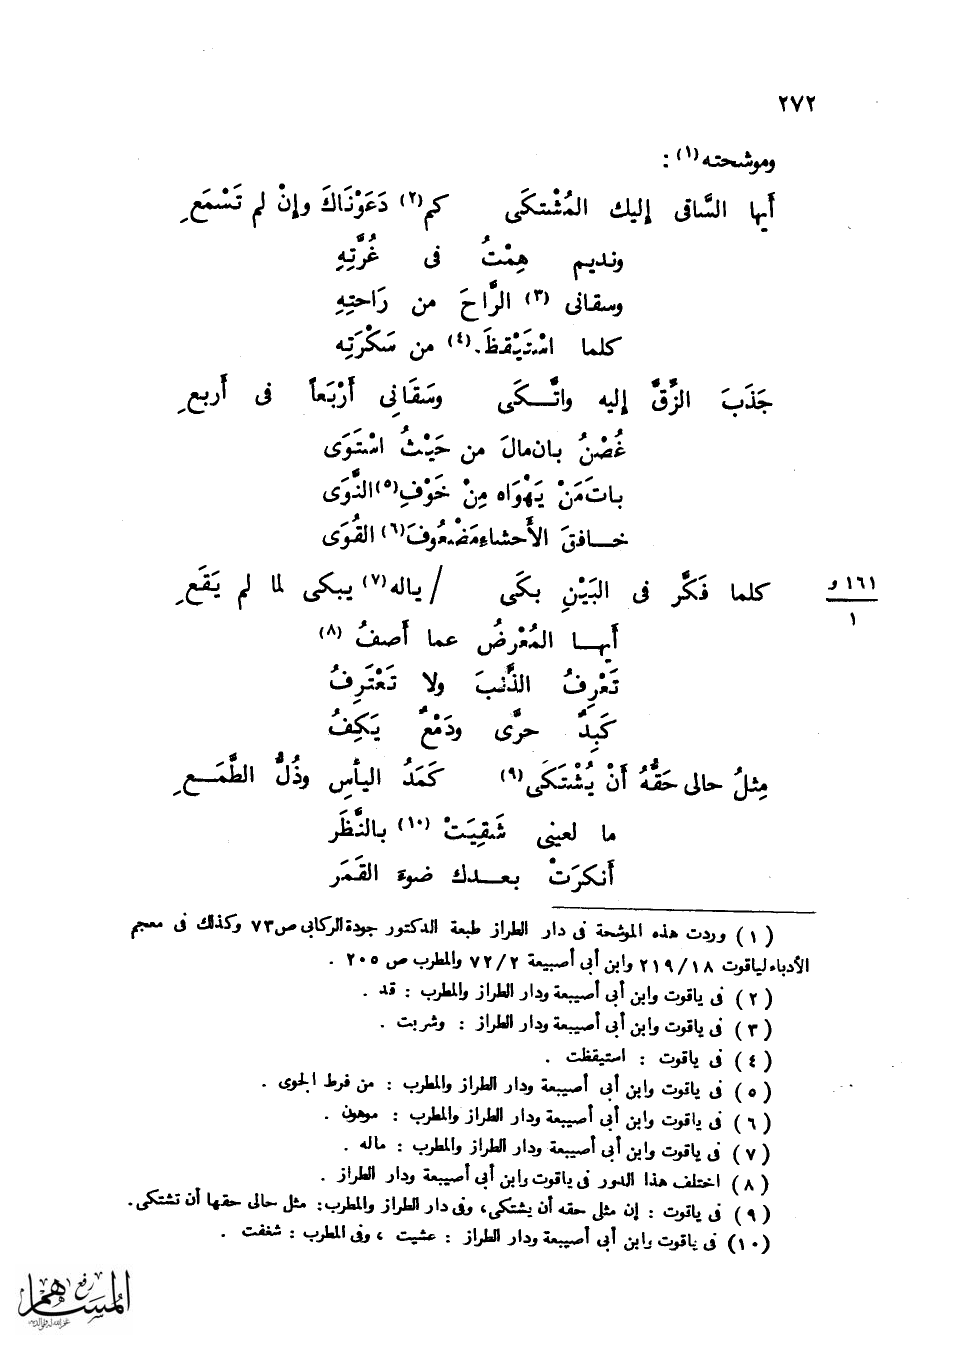 ٢٧٢
وموشحته (١) :
أيها السَّاقى إليك المُشْتكَى كم (٢) دَعَوْنَاكَ وإنْ لم تَسْمَعِ
ونديم هِمْتُ فى غُرَّتِهِ
وسقانى (٣) الرَّاحَ من رَاحتِهِ
كلما اسْتَيْقظَ (٤) من سَكْرَتِه
جَذَبَ الزَّقَّ إليه واتَّكَى وسَقَانِى أَرْبَعاً فى أَربعِ
غُصْنُ بان مالَ من حَيْثُ اسْتَوَى
باتَ مَنْ يَهْوَاه مِنْ خَوْفِ (٥) النَّوَى
خافقَ الأَحشاء مَضْعُوفَ (٦) القُوَى
١٦١ و
١
كلما فَكَّر فى البَيْنِ بكَى / ياله (٧) يبكى لما لم يَقَعِ
أَيها المُعْرضُ عما أَصفُ (٨)
تَعْرِفُ الذَّنبَ ولا تَعْتَرِفُ
كَبِدٌ حرَّى ودَمْعٌ يَكِفُ
مِثلُ حالى حَقُّهُ أَنْ يُشْتكَى (٩) كَمَدُ اليأْسِ وذُلُّ الطَّمَعِ
ما لعينى شَقِيَتْ (١٠) بالنَّظَر
أَنكرَتْ بعدك ضوءَ القَمَر
(١) وردت هذه الموشحة فى دار الطراز طبعة الدكتور جودة الركابى ص ٧٣ وكذلك فى معجم
الأدباء لياقوت ١٨/ ٢١٩ وابن أبى أصيبعة ٢/ ٧٢ والمطرب ص ٢٠٥ .
(٢) فى ياقوت وابن أبى أصيبعة ودار الطراز والمطرب : قد .
(٣) فى ياقوت وابن أبى أصيبعة ودار الطراز : وشربت .
(٤) فى ياقوت : استيقظت .
(٥) فى ياقوت وابن أبى أصيبعة ودار الطراز والمطرب : من فرط الجوى .
(٦) فى ياقوت وابن أبى أصيبعة ودار الطراز والمطرب : موهون .
(٧) فى ياقوت وابن أبى أصيبعة ودار الطراز والمطرب : ماله .
(٨) اختلف هذا الدور فى ياقوت وابن أبى أصيبعة ودار الطراز .
(٩) فى ياقوت : إن مثلى حقه أن يشتكى، وفى دار الطراز والمطرب: مثل حالى حقها أن تشتكى.
(١٠) فى ياقوت وابن أبى أصيبعة ودار الطراز : عشيت ، وفى المطرب : شغفت .
رفع
المساهم